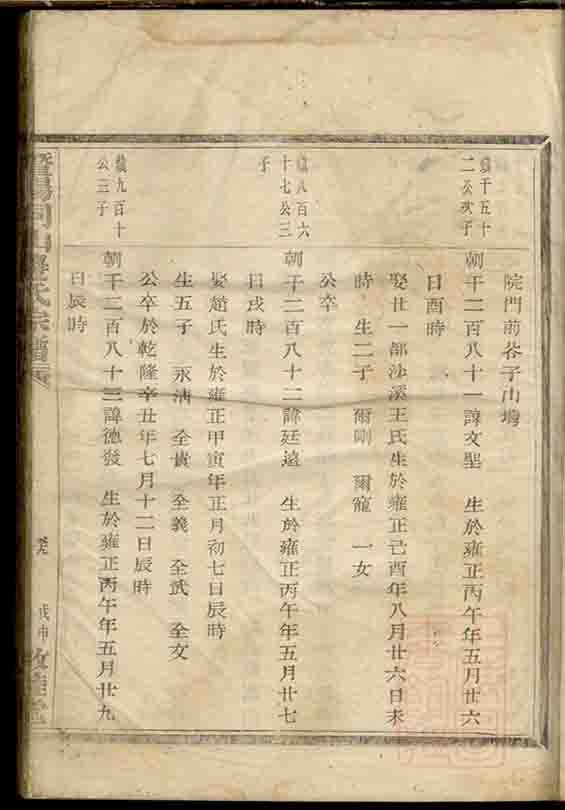 院門前荅子山塆
續千五十二公次子
朝千二百八十一諱文聖　生於雍正丙午年五月廿六
日酉時
娶廿一部沙溪王氏生於雍正己酉年八月廿六日未
時　生二子　爾剛　爾寵　一女
公卒
續八百六十七公三子
朝千二百八十二諱廷遠　生於雍正丙午年五月廿七
日戌時
娶趙氏生於雍正甲寅年正月初七日辰時
生五子　永清　全貴　全義　全武　全文
公卒於乾隆辛丑年七月十二日辰時
續九百十公三子
朝千二百八十三諱德發　生於雍正丙午年五月廿九
日辰時
暨陽同山壽氏宗譜
戊申